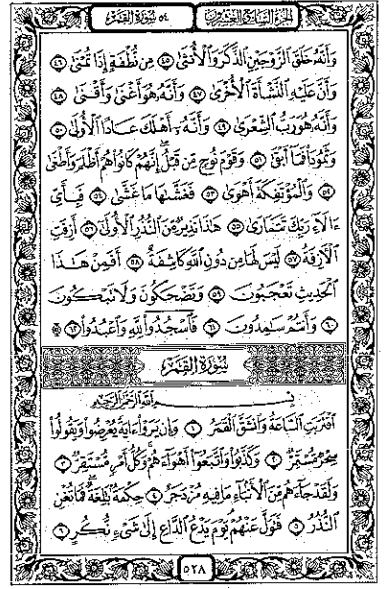 الجزء السابع والعشرون ٥٤ سورة القمر
وأنه خلق الزوجين الذكر والأنثى ٤٥ من نطفة إذا تمنى ٤٦
وأن عليه النشأة الأخرى ٤٧ وأنه هو أغنى وأقنى ٤٨
وأنه هو رب الشعرى ٤٩ وأنه أهلك عادا الأولى ٥٠
وثمودا فما أبقى ٥١ وقوم نوح من قبل إنهم كانوا هم أظلم وأطغى
٥٢ والمؤتفكة أهوى ٥٣ فغشىها ما غشى ٥٤ فبأي
ءالاء ربك تتمارى ٥٥ هذا نذير من النذر الأولى ٥٦ أزفت
الأزفة ٥٧ ليس لها من دون الله كاشفة ٥٨ أفمن هذا
الحديث تعجبون ٥٩ وتضحكون ولا تبكون
٦٠ وأنتم سامدون ٦١ فاسجدوا لله واعبدوا ۩ ٦٢
سورة القمر
بسم الله الرحمن الرحيم
اقتربت الساعة وانشق القمر ١ وإن يروا ءاية يعرضوا ويقولوا
سحر مستمر ٢ وكذبوا واتبعوا أهواءهم وكل أمر مستقر ٣
ولقد جاءهم من الأنباء ما فيه مزدجر ٤ حكمة بالغة فما تغن
النذر ٥ فتول عنهم يوم يدع الداع إلى شيء نكر ٦
٥٢٨